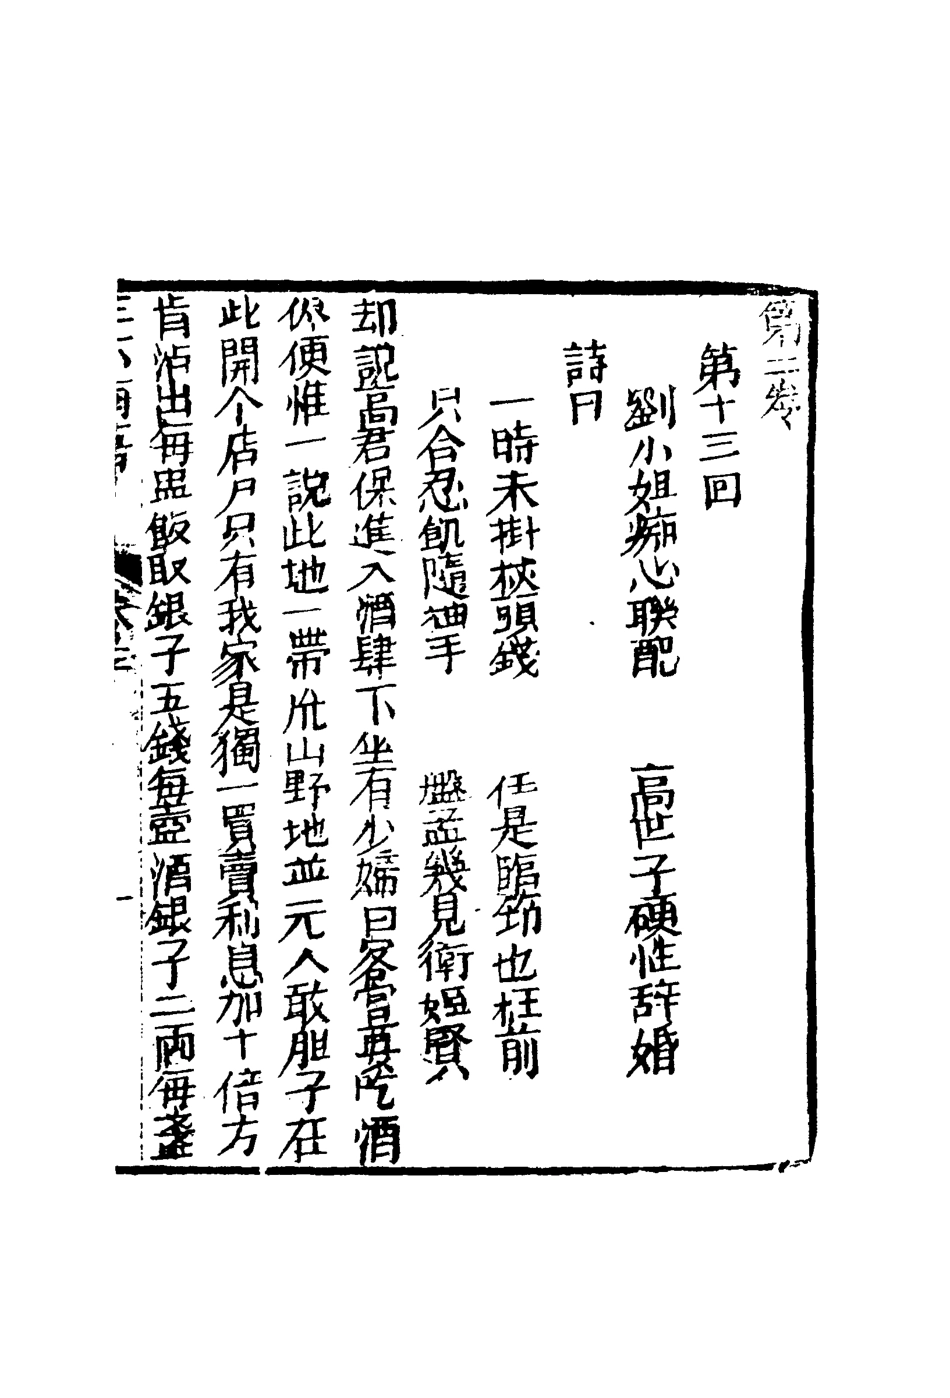 第二卷
第十三回
劉小姐痴心聯配　高世子硬性辞婚
詩曰
一時未掛杖頭錢　任是臨邛也枉前
只合忍飢隨袖手　盤盂幾見衛姬賢
却説高君保進入酒肆下坐有少婦曰客官要吃酒
便惟一說此地一帶山野地並元人敢胆子在
此開个店户只有我家是獨一買賣利息加十倍方
肯沽出每盅飯取銀子五錢每壺酒銀子二両每盞